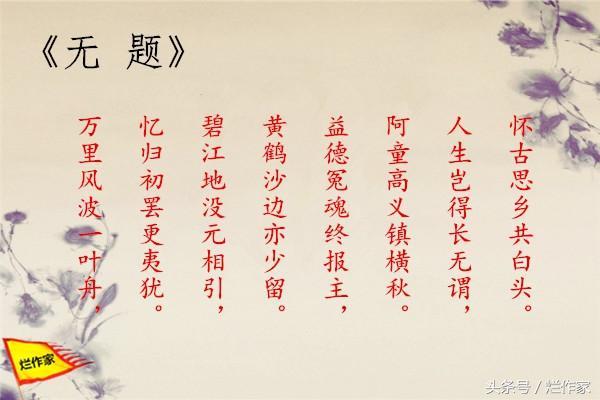 《无 题》
万里风波一叶舟，
忆归初罢更夷犹。
碧江地没元相引，
黄鹤沙边亦少留。
益德冤魂终报主，
阿童高义镇横秋。
人生岂得长无谓，
怀古思乡共白头。
烂作家
头条号 / 烂作家